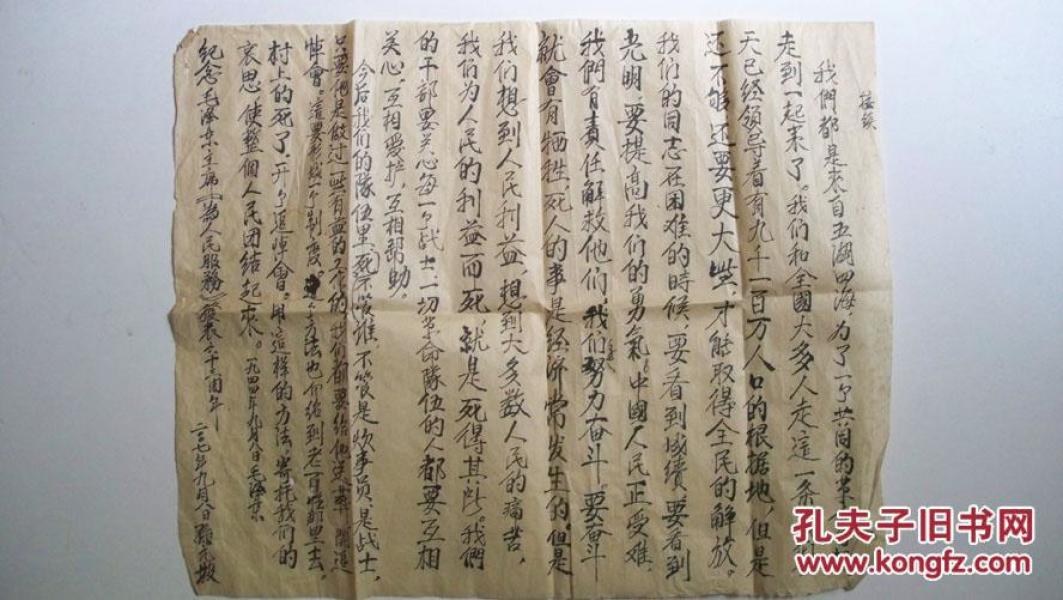 接续
我們都是来自五湖四海为了一个共同的革
走到一起来了。我们和全國大多人走這一条
天已经领导着有九千一百万人口的根据地,但是
还不够,还要更大些,才能取得全民的解放。
我们的同志在困难的時候,要看到成績,要看到
光明,要提高我們的勇氣。中國人民正受难,
我們有責任解救他们,我们努力奋斗。要奋斗
就會有牺牲,死人的事是经济常发生的。但是
我们想到人民利益,想到大多数人民的痛苦,
我们为人民的利益而死,就是死得其所。我們
的干部要关心每一个战士,一切革命隊伍的人都要互相
关心,互相爱护,互相帮助。
今后我们的隊伍里,死不管谁,不管是炊事員,是战士,
只要他是做过一些有益的工作的,我们都要给他送葬,開追
悼會。這要成一个制度。这个方法也介绍到老百姓那里去。
村上的死了,开个追悼會。用這样的方法,寄托我们的
哀思,使整個人民团结起来。一九四四年九月八日毛澤东
纪念毛澤东主席《为人民服務》發表六十三周年
二〇〇七年九月八日
孔夫子旧书网
www.kongfz.com